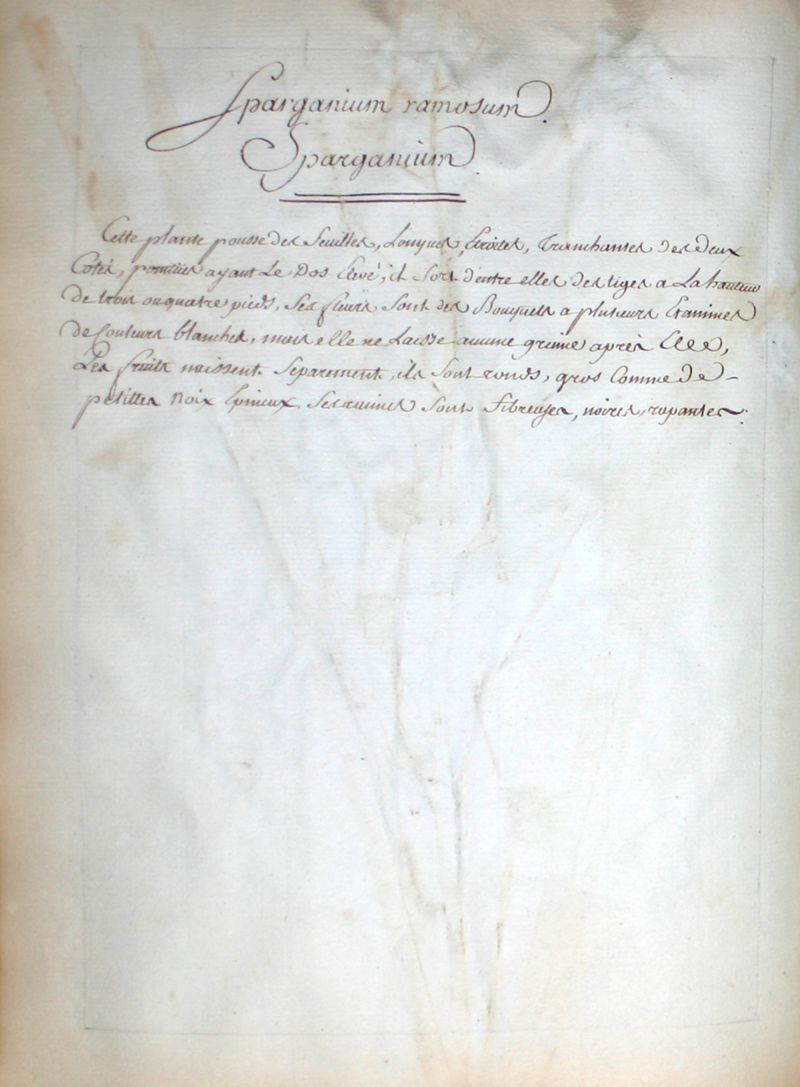 Sparganium ramosum.
Sparganium.
Cette plante pousse des feuilles, Longues, Etroites, Tranchantes des deux
Cotés, pointües ayant Le Dos Elevé, il sort d'entre elles des tiges a La hauteur
de trois ou quatre pieds, Ses fleurs sont des Bouquets a plusieurs Etamines
de Couleurs blanches, mais elle ne Laisse aucune graine après Elles,
Les fruits naissent Separement, ils sont ronds, gros Comme de-
petittes Noix Epineux. Ses racines sont fibreuses, noires, rapantes.